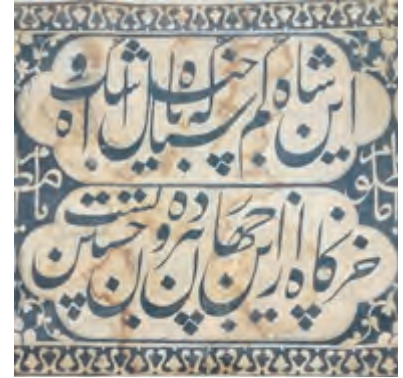 این شاه کم سپاه که با خیل اشک و آه
خرگاه ازین جهان زده بیرون حسین تست